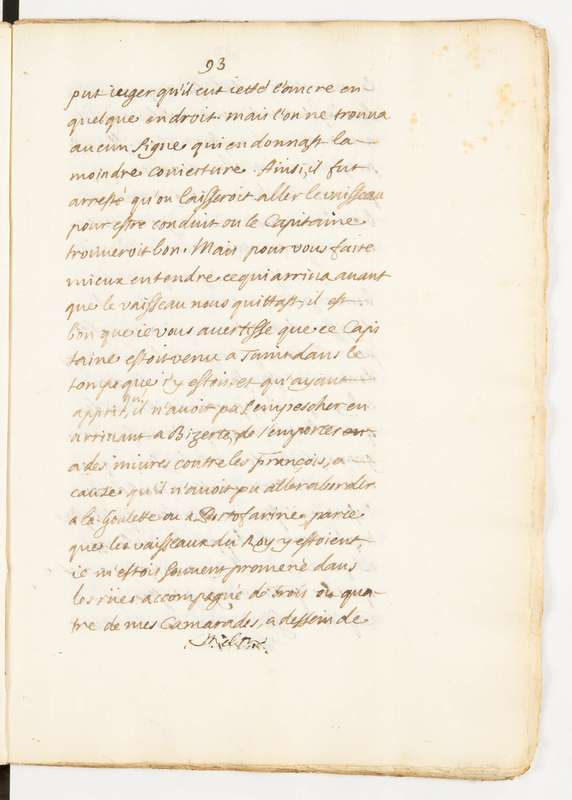 93
put iuger qu'il eut ietté l'ancre en
quelque endroit. mais l'on ne trouua
aucun signe qui en donnast la
moindre coniecture. Ainsi, il fut
arresté qu'on laisseroit aller le vaisseau
pour estre conduit ou le Capitaine
trouueroit bon. Mais pour vous faire
mieux entendre ce qui arriua auant
que le vaisseau nous quittast, il est
bon que ie vous auertisse que ce Capi
taine estoit venu a Tunis dans le
temps que i'y estois, et qu'ayant
appris, qu'il n'auoit pu s'empescher en
arriuant a Bizerte, de s'emporter en
a des iniures contre les françois, a
cause qu'il n'auoit pu aller aborder
a la Goulette ou a Portofarine parce
que les vaisseaux du Roy y estoient,
ie m'estois souuent promené dans
les rües accompagné de trois ou qua-
tre de mes Camarades, a dessein de